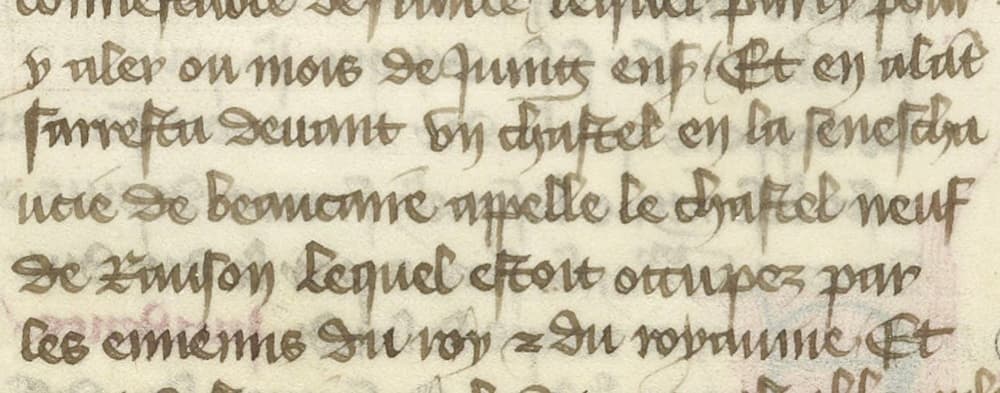 y aler ou mois de Juing ens Et en alāt
sarresta deuant vn chastel en la senescha
ucie de beaucaire appelle le chastel neuf
de Rauson Lequel estoit occupez par
les ennemis du roy ⁊ du royaume Et